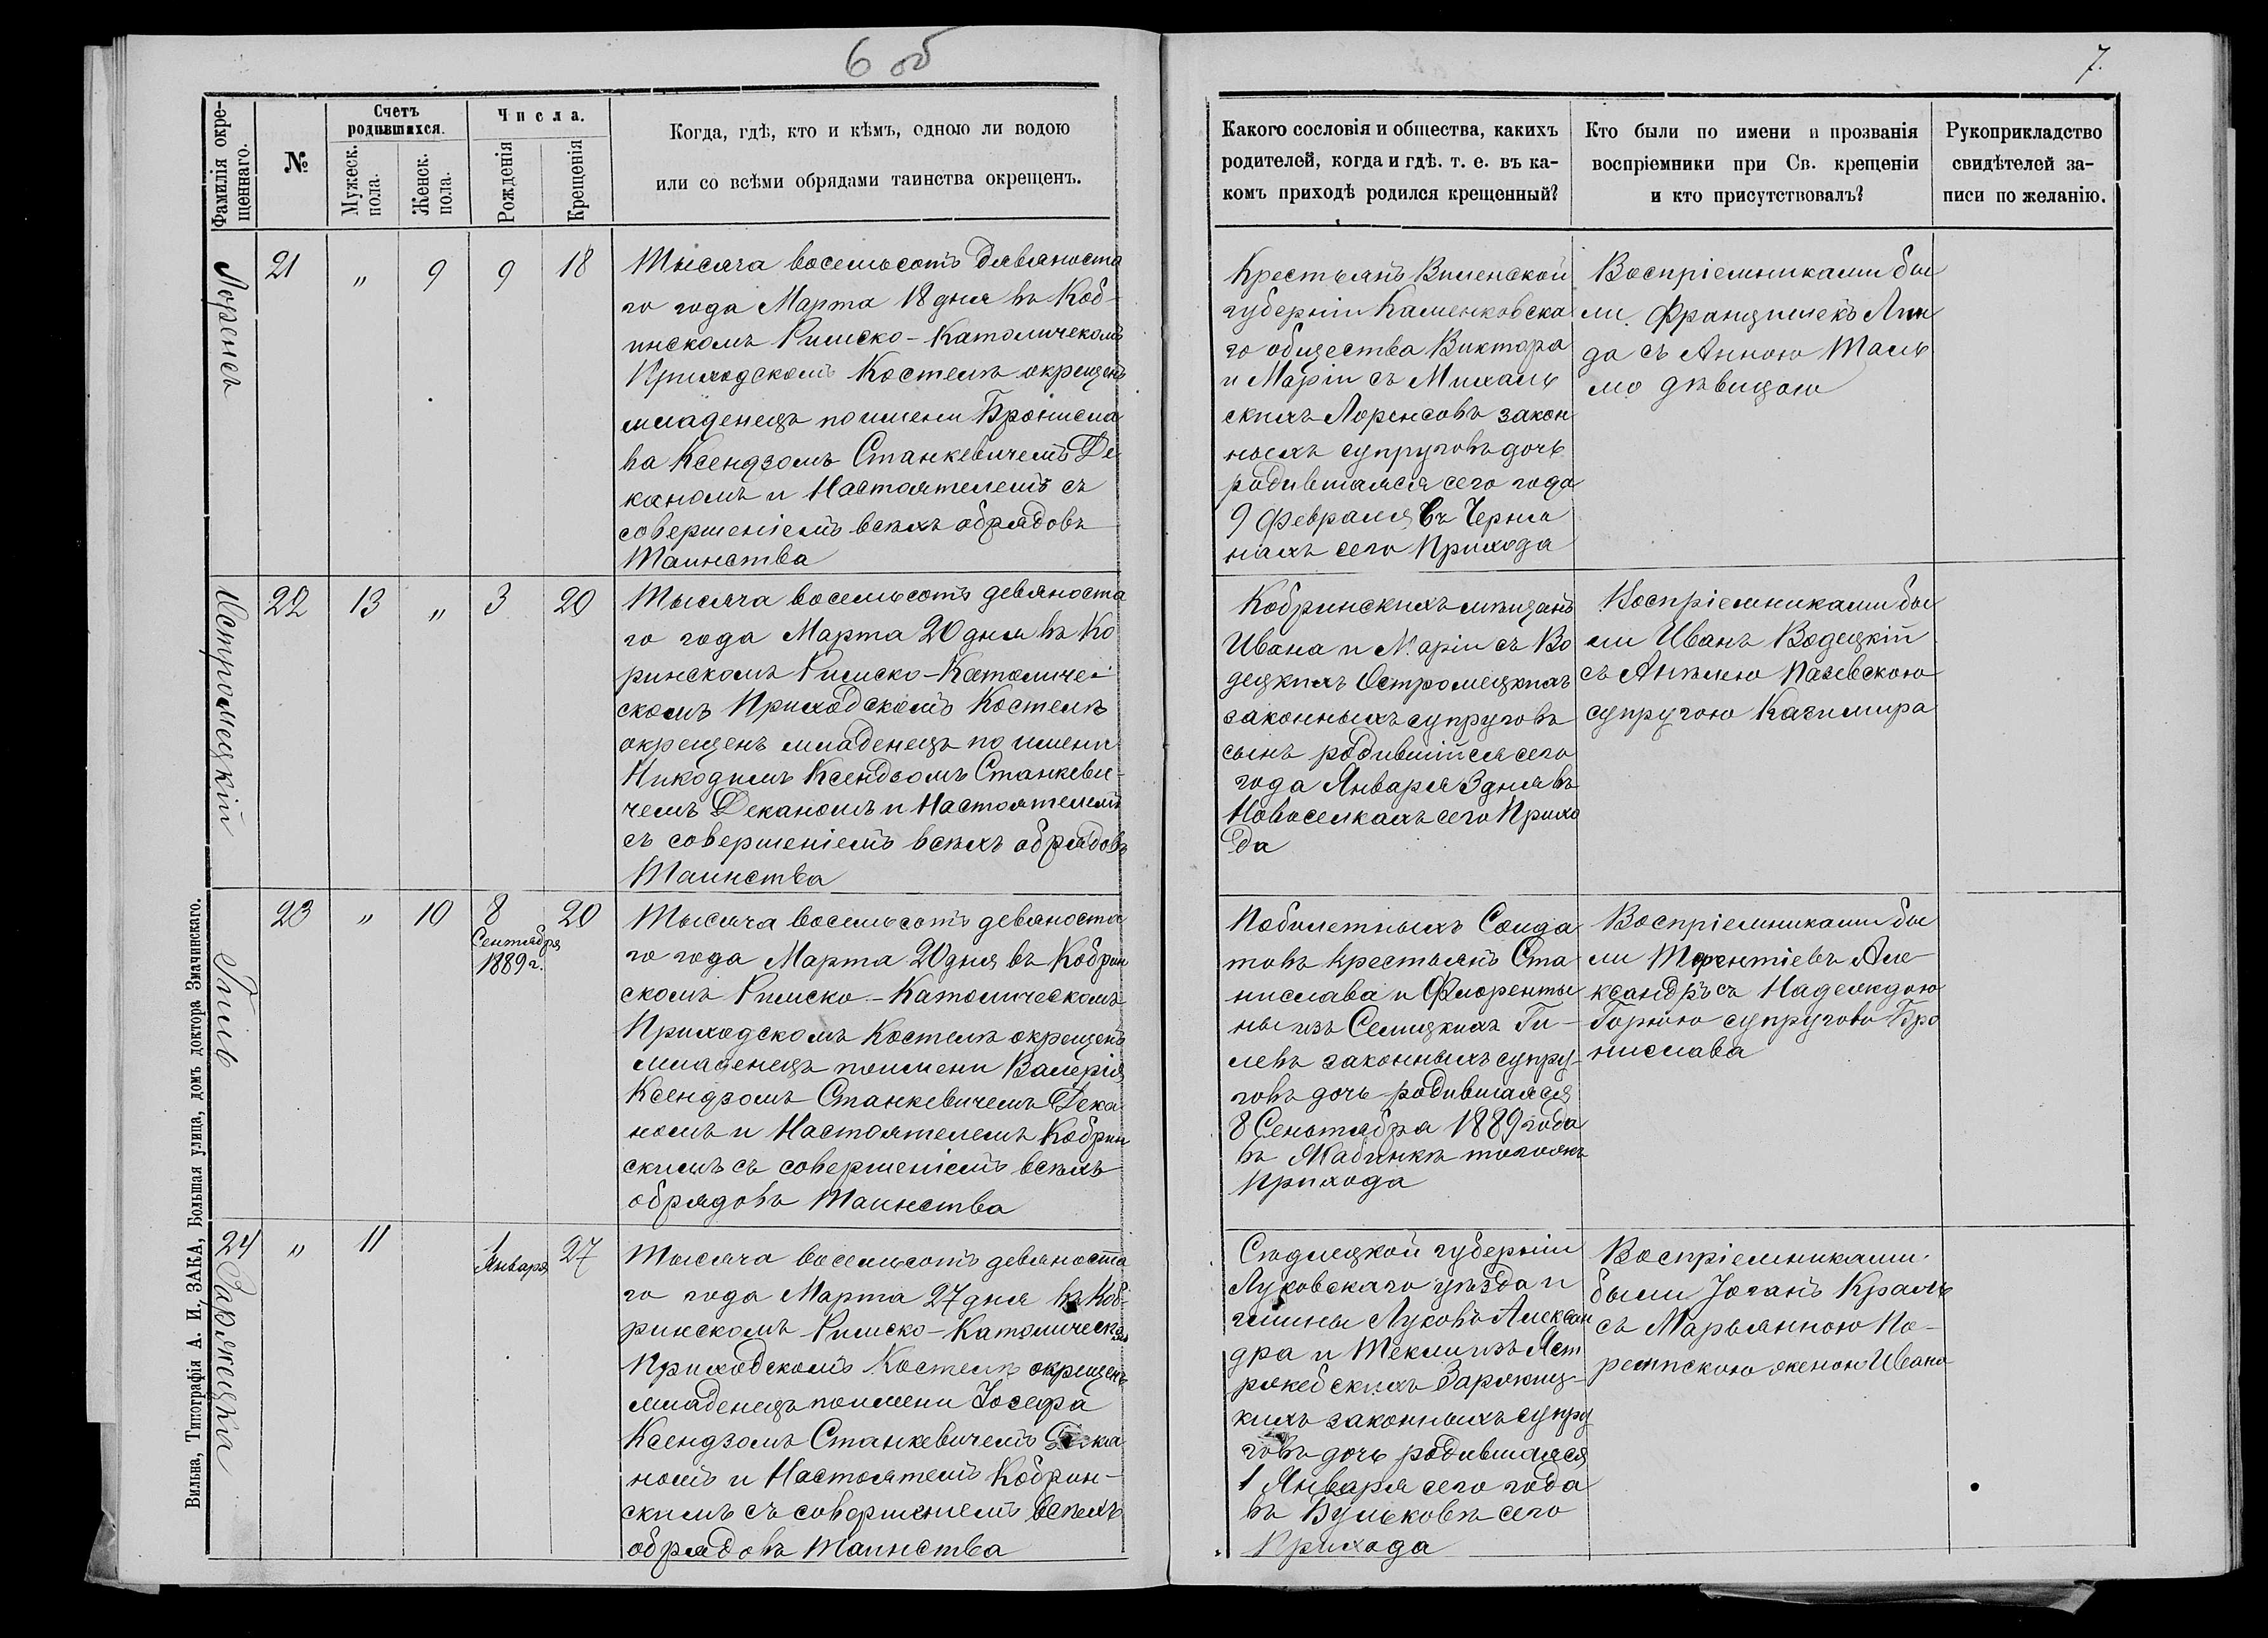 6 об
7.
Фамилія окре-
щеннаго.
№
Счетъ
родившихся.
Мужеск.
пола.
Женск.
пола.
Числа.
Рожденія
Крещенія
Когда, гдѣ, кто и кѣмъ, одною ли водою
или со всѣми обрядами таинства окрещенъ.
Какого сословія и общества, какихъ
родителей, когда и гдѣ. т. е. въ ка-
комъ приходѣ родился крещенный?
Кто были по имени и прозванія
воспріемники при Св. крещеніи
и кто присутствовалъ?
Рукоприкладство
свидѣтелей за-
писи по желанію.
Лоренсъ
21 „ 9 9 18
Тысяча восемьсотъ девяноста
го года Марта 18 дня въ Коб-
инскомъ Римско-Католичекомъ
Приходскомъ Костелѣ окрещенъ
младенецъ по имени Брониcла
ва Ксендзомъ Станкевичемъ Де
каномъ и Настоятелемъ съ
совершеніемъ всѣхъ обрядовъ
Таинства
Крестьянъ Виленской
губерніи Каменковска
го общества Виктора
и Маріи съ Михаль
скихъ Лоренсовъ закон
ныхъ супруговъ дочь
родившаяся сего года
9 Февраля въ Черня
нахъ сего Прихода
Воспріемниками бы
ли Францишекъ Лин
да съ Анною Таль
мо дѣвицою
Остромецкій
22 13 „ 3 20
Тысяча восемьсотъ девяноста
го года Марта 20 дня въ Ко
ринскомъ Римско-Католиче-
скомъ Приходскомъ Костелѣ
окрещенъ младенецъ по имени
Никодимъ Ксендзомъ Станкеви-
чемъ Деканомъ и Настоятелемъ
съ совершеніемъ всѣхъ обрядовъ
Таинства
Кобринскихъ мѣщанъ
Ивана и Маріи съ Во
децкихъ Остромецкихъ
законныхъ супруговъ
сынъ родившійся сего
года Января 3 дня въ
Новоселкахъ сего Прихо
да
Воспріемниками бы
ли Иванъ Водецкій
съ Анѣлею
супругою Казимира
Гиль
23 „ 10 8 20
Сентября
1889 г.
Тысяча восемьсотъ девяноста
го года Марта 20 дня въ Кобрин
скомъ Римско-Католическомъ
Приходскомъ Костелѣ окрещенъ
младенецъ по имени Валерія
Ксендзомъ Станкевичемъ Дека
номъ и Настоятелемъ Кобрин
скимъ съ совершеніемъ всѣхъ
обрядовъ Таинства
Побилетныхъ Солда
товъ крестьянъ Ста
нислава и Флоренты
ны изъ Селицкихъ Ги-
левъ законныхъ супру-
говъ дочь родившаяся
8 Сентября 1889 года
въ тогожъ
Прихода
Воспріемниками бы
ли Терентіевъ Але-
ксандръ съ Надеждою
супругово Бро
нислава
Заржецкая
24 „ 11 1 27
Января
Тысяча восемьсотъ девяноста
го года Марта 27 дня въ Коб-
ринскомъ Римско-Католическом
Приходскомъ Костелѣ окрещенъ
младенецъ по имени Іосефа
Ксендзомъ Станкевичемъ Дека
номъ и Настоятемъ Кобрин-
скимъ съ совершенiемъ всѣхъ
обрядовъ Таинства
Сѣдлецкой губерніи
Луковскаго уѣзда и
гмины Луковъ Алексан
дра и Текли изъ Яст
ржебскихъ Заржец-
кихъ законныхъ супру
говъ дочь родившаяся
1 Января сего года
въ Вульковѣ сего
Прихода
Воспріемниками
были Іоганъ Краль
съ Марьянною
женою Ивана
Вильна, Типографія А. И. ЗАКА, Большая улица, домъ доктора Змачинскаго.